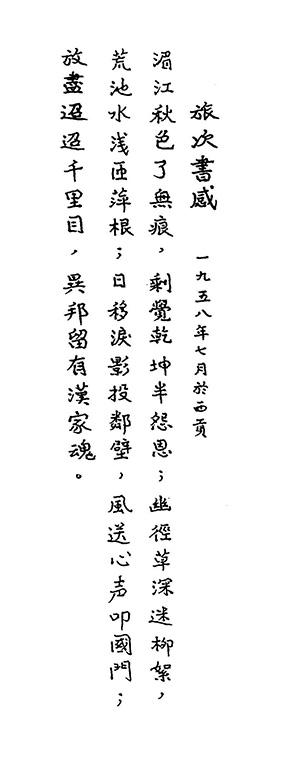 旅次書感
一九五八年七月於西貢
湄江秋色了無痕，剩覺乾坤半怨恩；幽徑草深迷柳絮，
荒池水浅匝萍根；日移淚影投鄰壁，風送心声叩國門；
放盡迢迢千里目，異邦留有漢家魂。